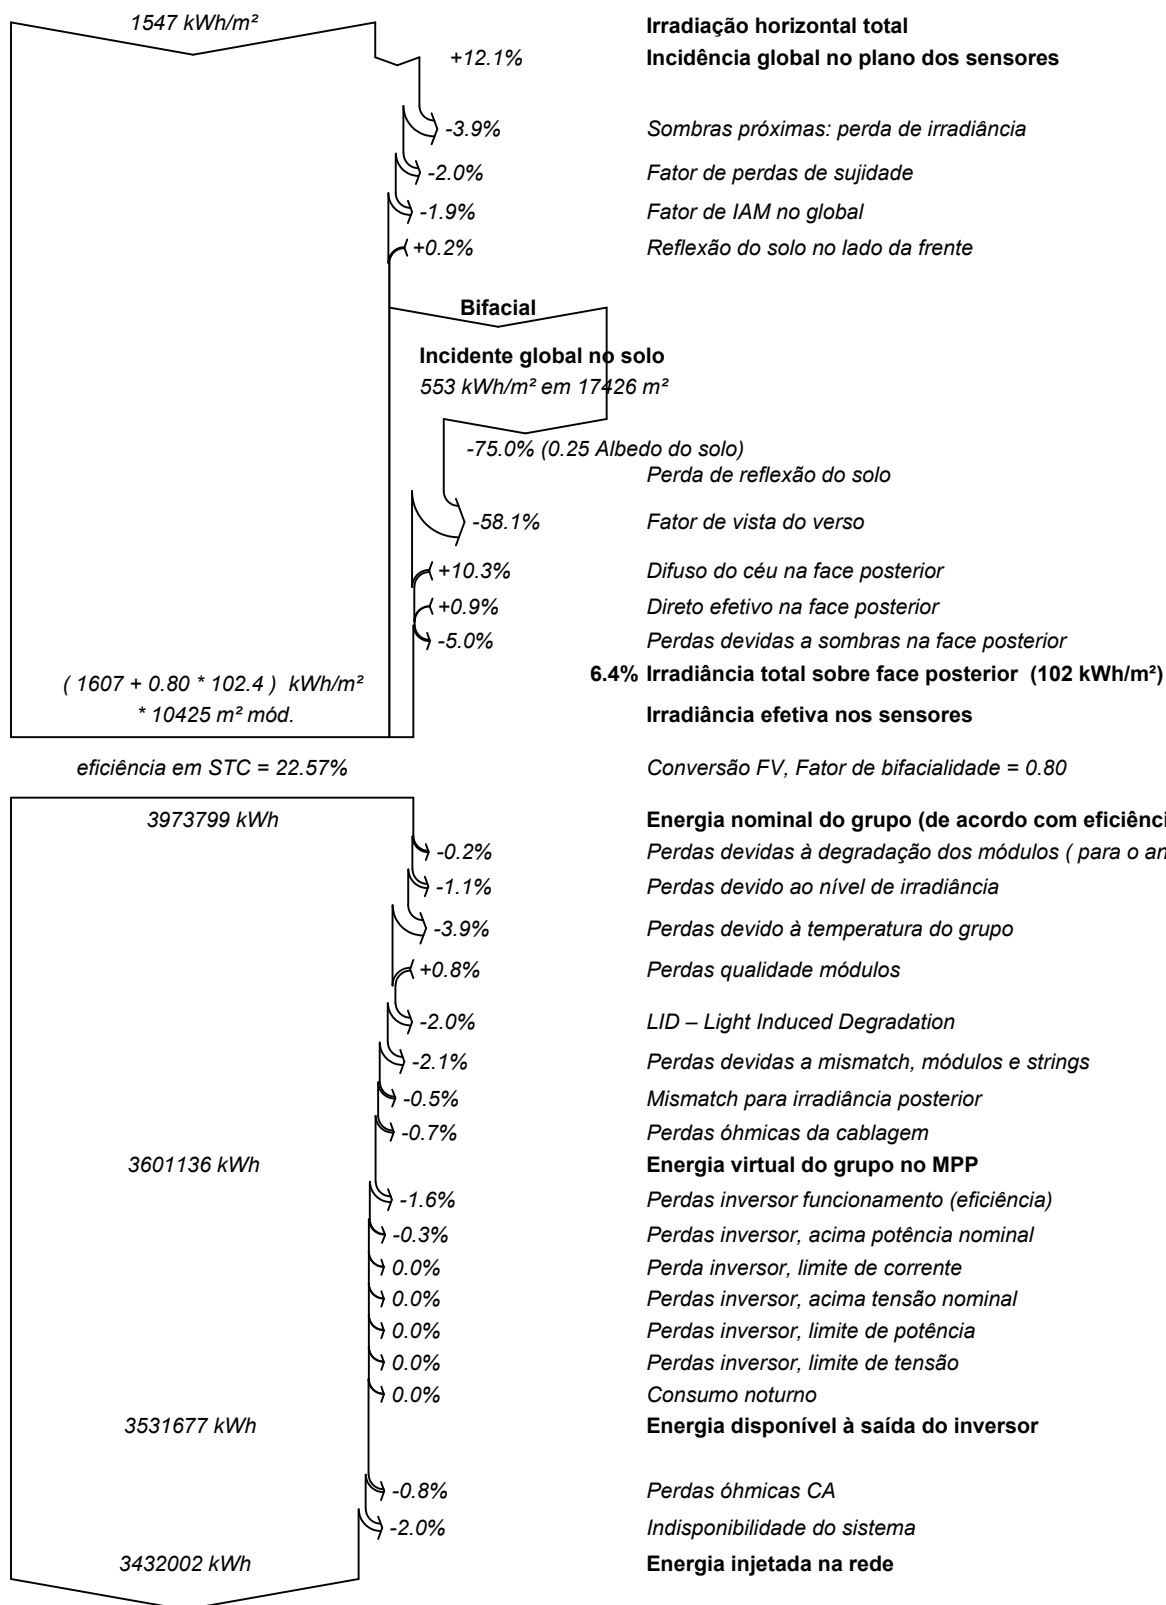 1547 kWh/m² Irradiação horizontal total
+12.1% Incidência global no plano dos sensores
-3.9% Sombras próximas: perda de irradiância
-2.0% Fator de perdas de sujidade
-1.9% Fator de IAM no global
+0.2% Reflexão do solo no lado da frente
Bifacial
Incidente global no solo
553 kWh/m² em 17426 m²
-75.0% (0.25 Albedo do solo)
Perda de reflexão do solo
-58.1% Fator de vista do verso
+10.3% Difuso do céu na face posterior
+0.9% Direto efetivo na face posterior
-5.0% Perdas devidas a sombras na face posterior
6.4% Irradiância total sobre face posterior (102 kWh/m²)
( 1607 + 0.80 * 102.4 ) kWh/m²
* 10425 m² mód. Irradiância efetiva nos sensores
eficiência em STC = 22.57% Conversão FV, Fator de bifacialidade = 0.80
3973799 kWh Energia nominal do grupo (de acordo com eficiênci
-0.2% Perdas devidas à degradação dos módulos ( para o an
-1.1% Perdas devido ao nível de irradiância
-3.9% Perdas devido à temperatura do grupo
+0.8% Perdas qualidade módulos
-2.0% LID – Light Induced Degradation
-2.1% Perdas devidas a mismatch, módulos e strings
-0.5% Mismatch para irradiância posterior
-0.7% Perdas óhmicas da cablagem
3601136 kWh Energia virtual do grupo no MPP
-1.6% Perdas inversor funcionamento (eficiência)
-0.3% Perdas inversor, acima potência nominal
0.0% Perda inversor, limite de corrente
0.0% Perdas inversor, acima tensão nominal
0.0% Perdas inversor, limite de potência
0.0% Perdas inversor, limite de tensão
0.0% Consumo noturno
3531677 kWh Energia disponível à saída do inversor
-0.8% Perdas óhmicas CA
-2.0% Indisponibilidade do sistema
3432002 kWh Energia injetada na rede